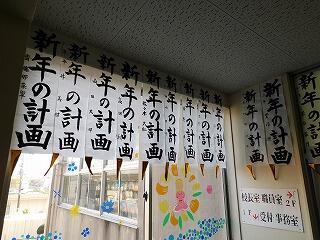 新年の計画
新年の計画
新年の計画
新年の計画
新年の計画
新年の計画
新年の計画
新年の計画
新年の計画
新年の計画
校長室 職員室 2F
1F 受付・事務室